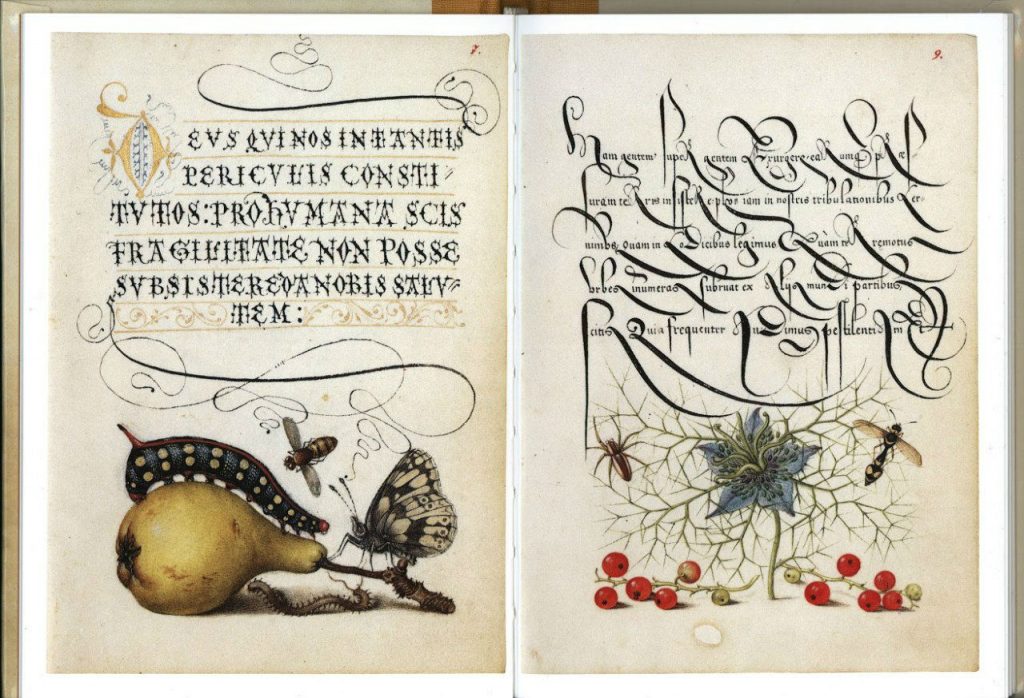 7.
DEVS QVI NOS IN TANTIS
PERICVLIS CONSTI-
TVTOS: PRO hVMANA SCIS
FRAGILITATE NON POSSE
SVBSISTERE DA NOBIS SALV-
TEM:
9.
Nam gentem supe gentem Exurgere
in nostris tribulationibus
quam in Codicibus legimus Quam
Orbes inumeras subruat ex alijs mundi partibus,
scitis Quia frequenter Audimus pestilentiam